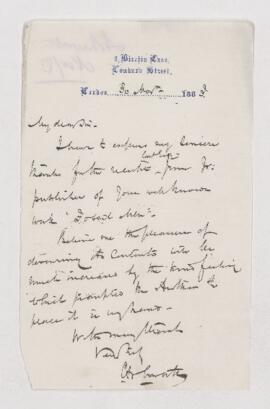 1, Birchin Lane,
Lombard Street,
London 30 Nov 1883
My dear Sir
I have to express my sincere
thanks for the receipt today from the
publisher of your well known
work "
Believe me the pleasure of
devouring the contents will be
much increased by the kind feeling
which prompted the Author to
place it in my hands.
With many thanks